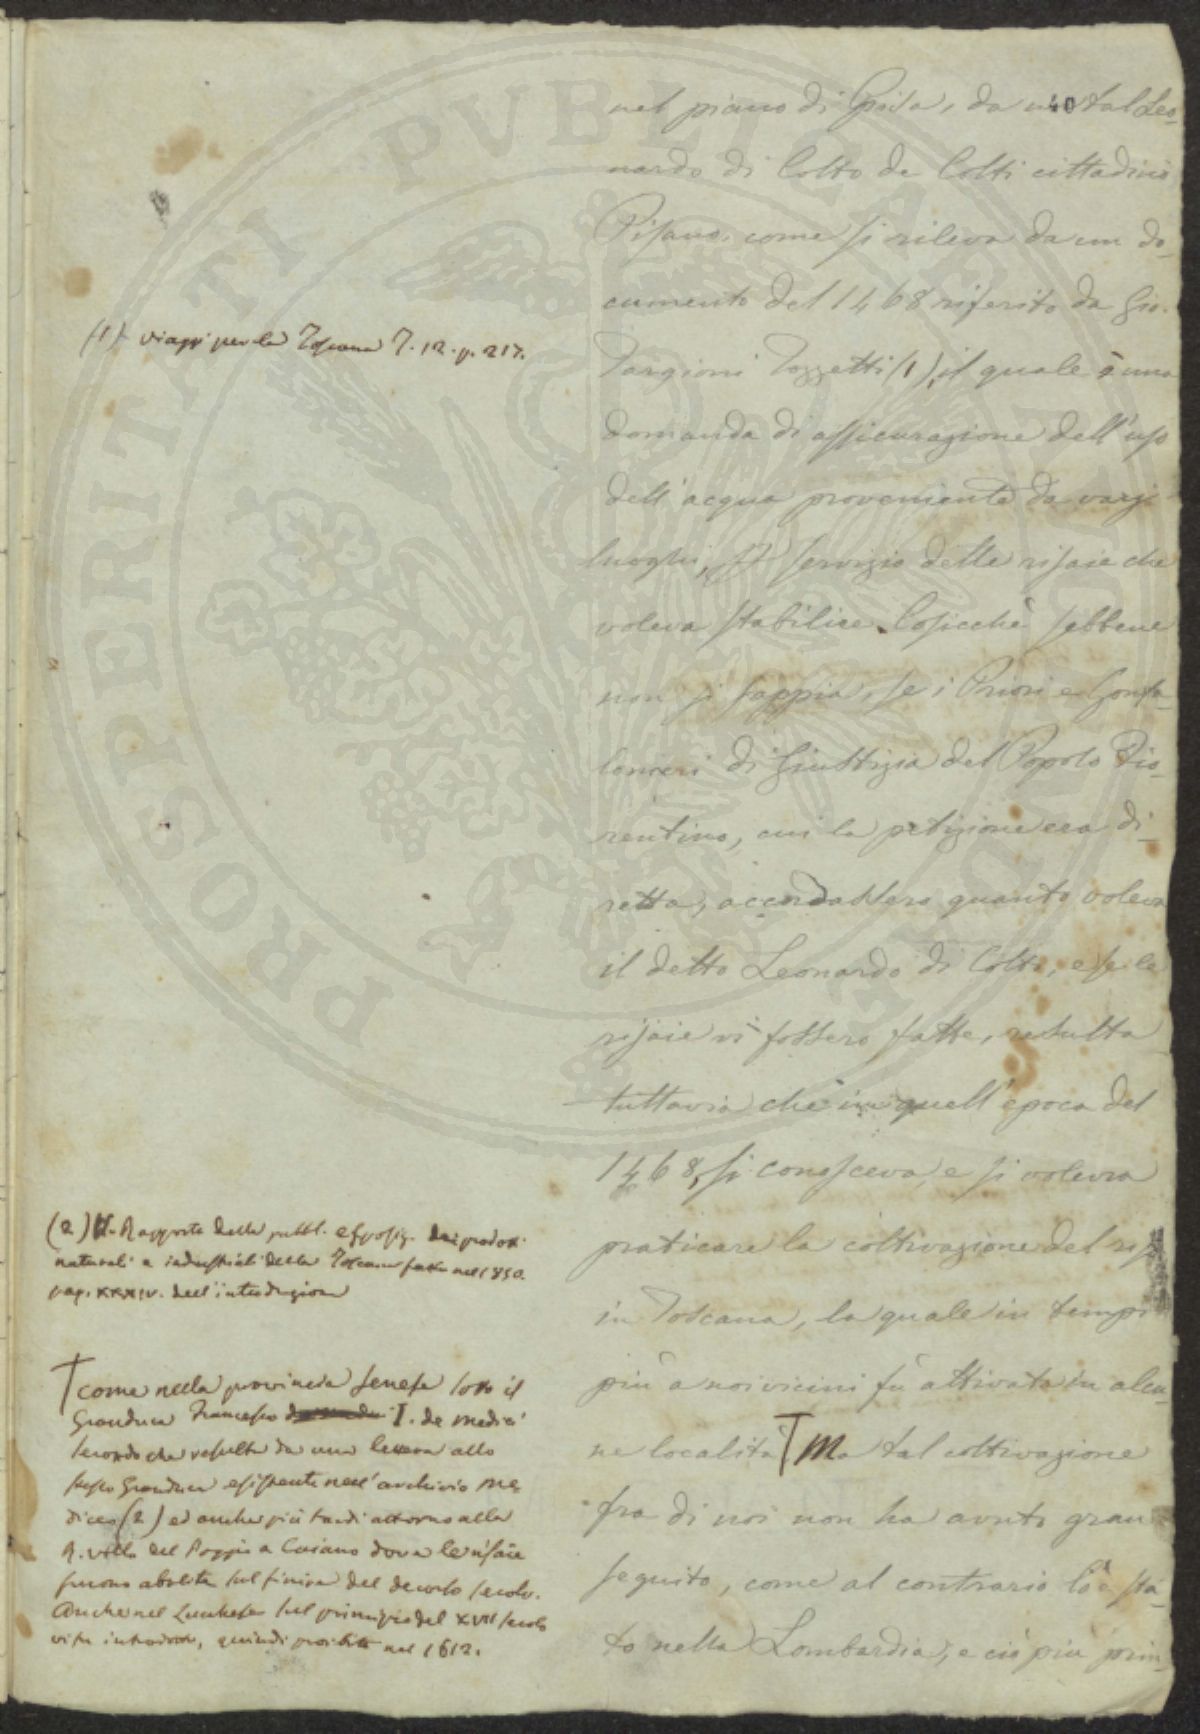 nel piano di Pisa, da un tal Leo-
40
nardo di Colto de Colti cittadino
Pisano, come si rileva da un do-
cumento del 1468 riferito da Gio.
Targioni Tozzetti (1), il quale è una
domanda di assicurazione dell'uso
dell'acqua proveniente da varj
luoghi, servizio delle risaie che
voleva stabilire. Cosicchè sebbene
non si sappia, se i Priori e Gonfa-
lonieri di Giustizia del Popolo Fio-
rentino, cui la petizione era di-
retta, accordassero quanto voleva
il detto Leonardo di Colto, e se le
risaie vi fossero fatte, resulta
tuttavia che in quell'epoca del
1468, si conosceva, e si voleva
praticare la coltivazione del
in Toscana, la quale in tempi
più a noi vicini fù attivata in alcu-
ne localita † Ma tal coltivazione
fra di noi non ha avuto gran
seguito, come al contrario lo è sta-
to nella Lombardia, e ciò più prin-
(1) Viaggi per la Toscana T. 12. p. 217.
(2) V. Rapporto della pubbl. esposiz. dei prodotti
naturali e industriali della Toscana fatta nel 1850.
pag. XXXIV. dell'introduzione
† come nella provincia senese sotto il
Granduca Francesco I. de Medici
secondo che resulta da una lettera allo
stesso Granduca esistente nell'archivio Me-
diceo (2) ed anche più tardi attorno alla
R. villa del Poggio a Caiano dove le risaie
furono abolite sul finire del decorso secolo.
Anche nel Lucchese sul principio del XVII secolo
vi fu introdotto, quindi proibito nel 1612.
PROSPERITATI PVBLICAE